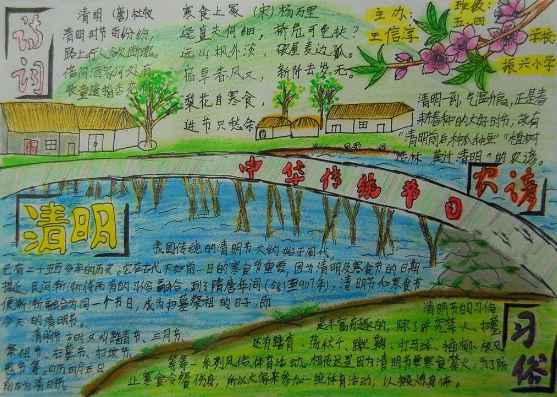 诗词
清明 (唐) 杜牧
清明时节雨纷纷,
路上行人欲断魂.
借问酒家何处有
牧童遥指杏花
寒食上冢 (宋) 杨万里
迳直夫何细, 桥危可免扶?
远山枫外淡, 破屋麦边孤.
宿草春风又, 新阡去岁无.
梨花自寒食,
进节只愁余
主办:
王信淳
班级:
五、四
学校
振兴小学
清明一到, 气温升高, 正是春
新春种的大好时节, 故有
"清明前后种瓜种豆" "植树
造林 莫过清明" 的农谚.
农谚
中华传统节日
清明
我国传统的清明节大约始于周代,
已有二千五百多年的历史。它在古代不如前一日的寒食节重要, 因为清明及寒食节的日期
接近, 民间渐渐将两者的习俗融合, 到了隋唐年间(581至907年), 清明节和寒食节
便渐渐融合为同一个节日, 成为扫墓祭祖的日子, 即
今天的清明节。
清明节古时又叫踏青节、三月节、
祭祖节、扫墓节、扫坟节、
鬼节等。
习俗
清明节的习俗
是丰富有趣的, 除了讲究禁火、扫墓,
还有踏青、荡秋千、蹴鞠、打马球、插柳、放风
筝等一系列风俗体育活动。相传这是因为清明节要寒食禁火, 为了防
止寒食冷餐伤身, 所以大家来参加一些体育活动, 以锻炼身体。